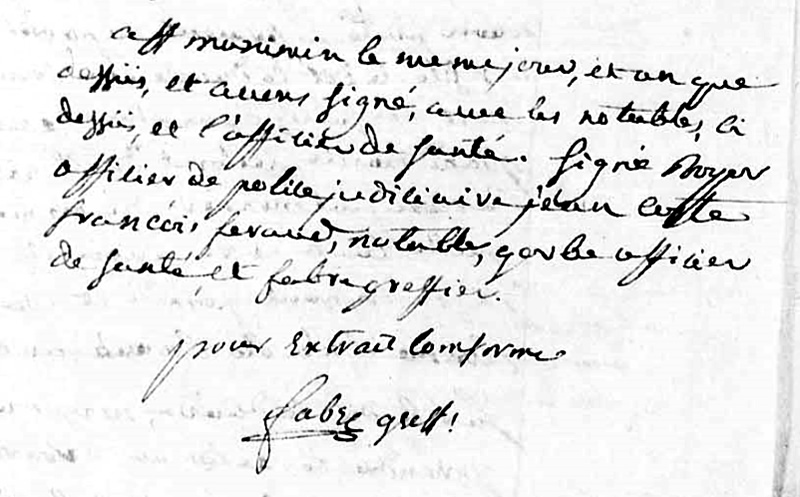 a st maximin le meme jour, et an que
dessus, et avens signé, avec les notables, ci
dessus, et l'officier de santé. Signé Boyer
officier de police judiciaire jean coste
francois feraud, notable, gerbe officier
de santé, et fabre greffier.
pour Extrait Conforme
fabre greff!